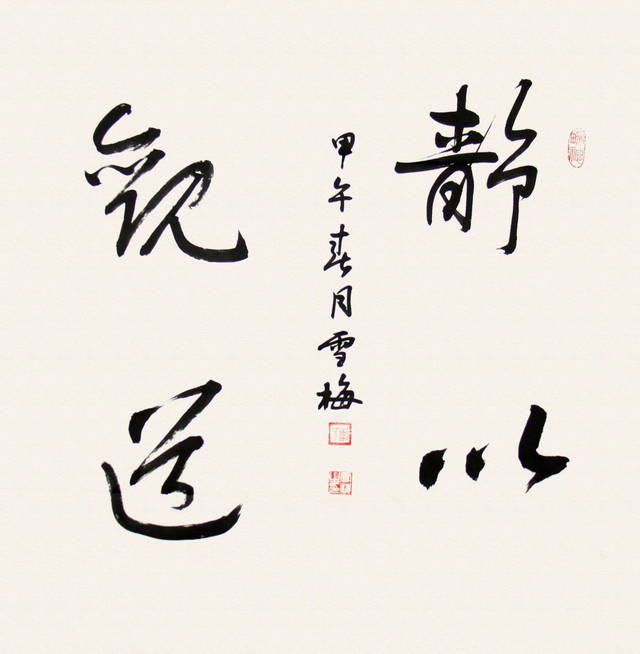 靜以
觀道
甲午春月雪梅